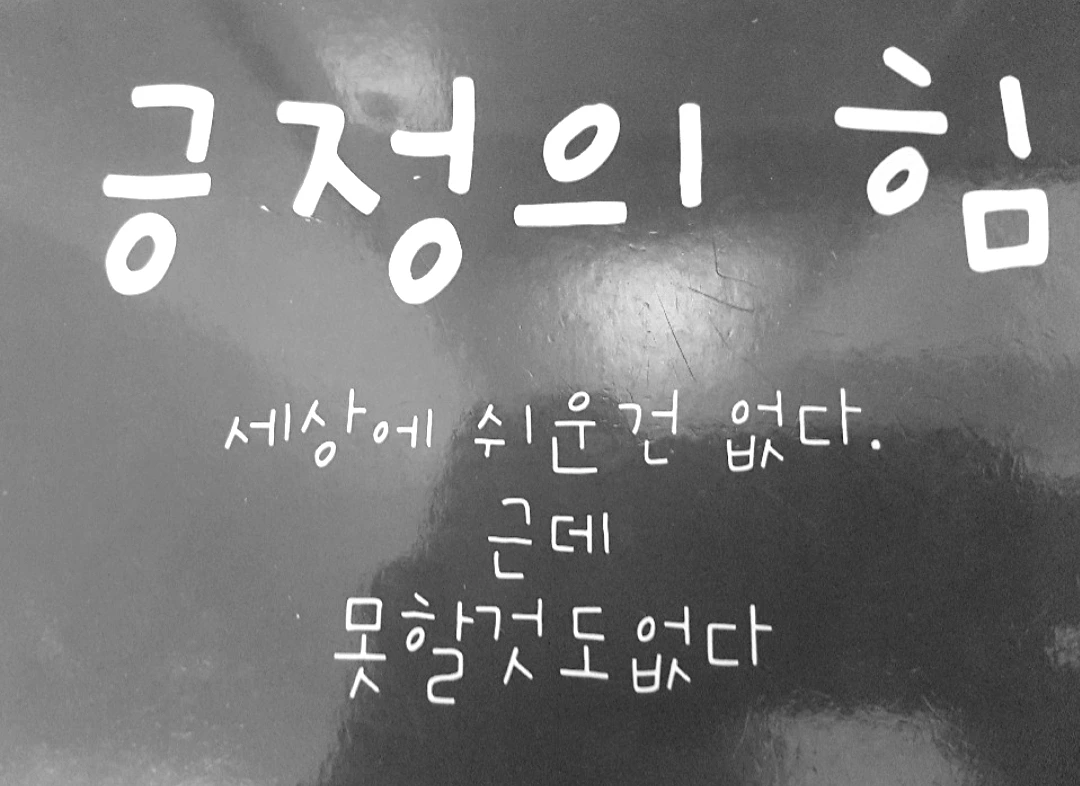 긍정의 힘
세상에 쉬운건 없다.
근데
못할것도없다